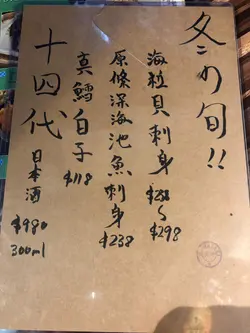 冬の旬!!
海粒貝刺身
$238~$298
原條深海池魚刺身
$238
真鱈白子
$118
十四代
日本酒
$980
300ml